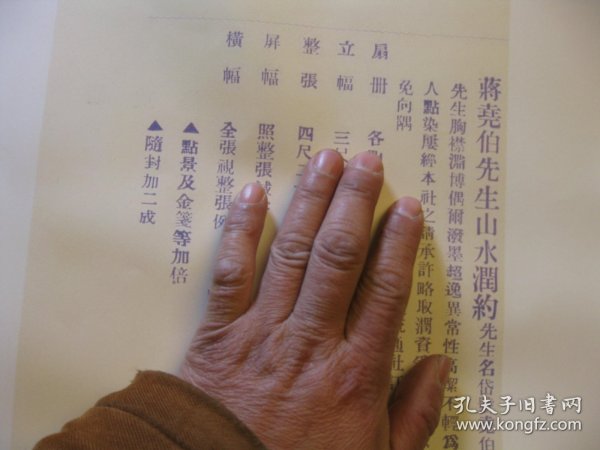 蔣堯伯先生山水潤約 先生名岱
先生胸襟淵博偶爾潑墨超逸異常性高潔不輕爲
人點染屢經本社之請承許略取潤資
免向隅
扇册 各
立幅 三
整張 四尺
屏幅 照整張
橫幅 全張視整張例
▲點景及金箋等加倍
▲隨封加二成
孔夫子旧书网
www.kongfz.com